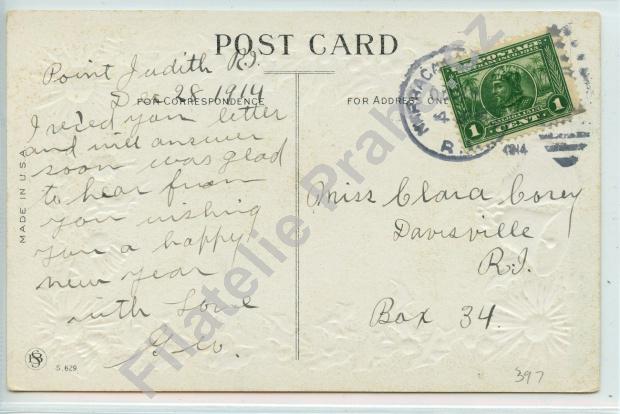 POST CARD
Point Judith R.I.
Dec 28 1914
FOR CORRESPONDENCE
I rec'd your letter
and will answer
soon was glad
to hear from
you wishing
you a happy
new year
with Love
MADE IN U.S.A.
S. 629
FOR ADDRESS ONL
NARRAGA
R
1914
U.S. POSTAGE
1 CENT 1
Miss Clara Corey
Davisville
R.I.
Box 34.
397
Filatelie Praha